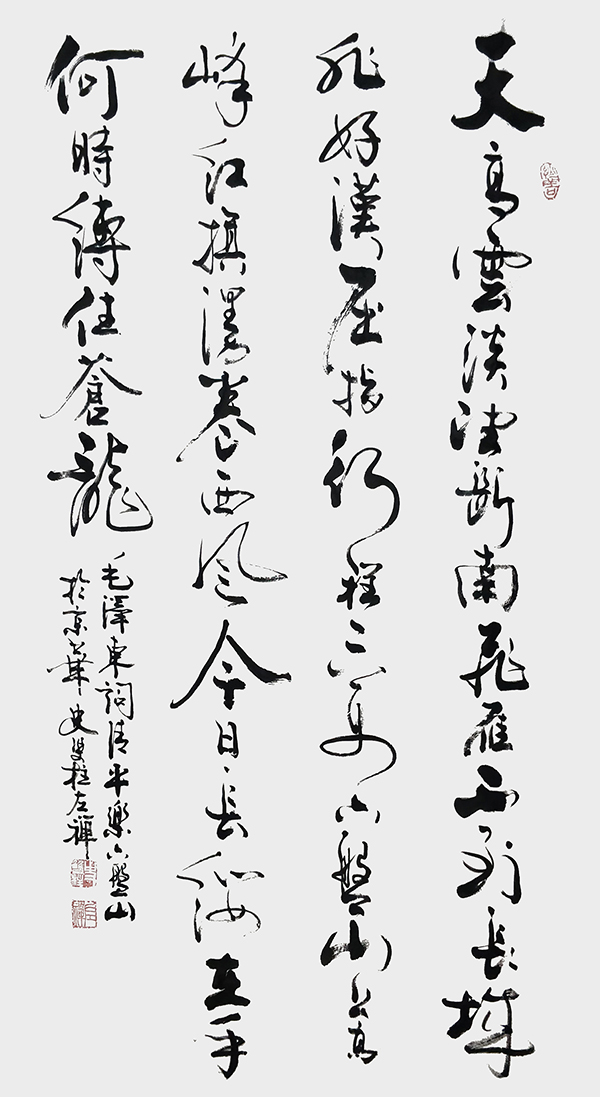 天高雲淡望斷南飛雁不到長城
非好漢屈指行程二万六盤山上高
峰紅旗漫卷西風今日長纓在手
何時縛住蒼龍
毛澤東詞清平樂六盤山
於京華史柱左禪